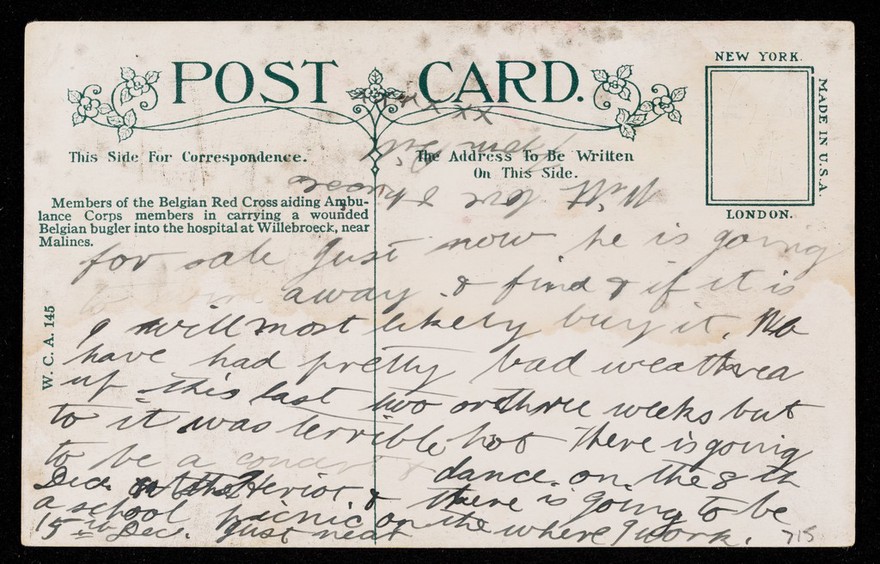 POST CARD.
NEW YORK.
MADE IN U.S.A
LONDON.
This Side For Correspondence.
The Address To Be Written
On This Side.
Members of the Belgian Red Cross aiding Ambu-
lance Corps members in carrying a wounded
Belgian bugler into the hospital at Willebroeck, near
Malines.
W. C. A. 145
x x x x x x
for sale Just now he is going
away & find & if it is
I will most likely buy it. We
have had pretty bad weather
up this last two or three weeks but
to it was terrible hot There is going
to be a concert & dance on the 8 th
Dec. at the Heriot & there is going to be
a school picnic on the where I work.
15th Dec. Just near
715